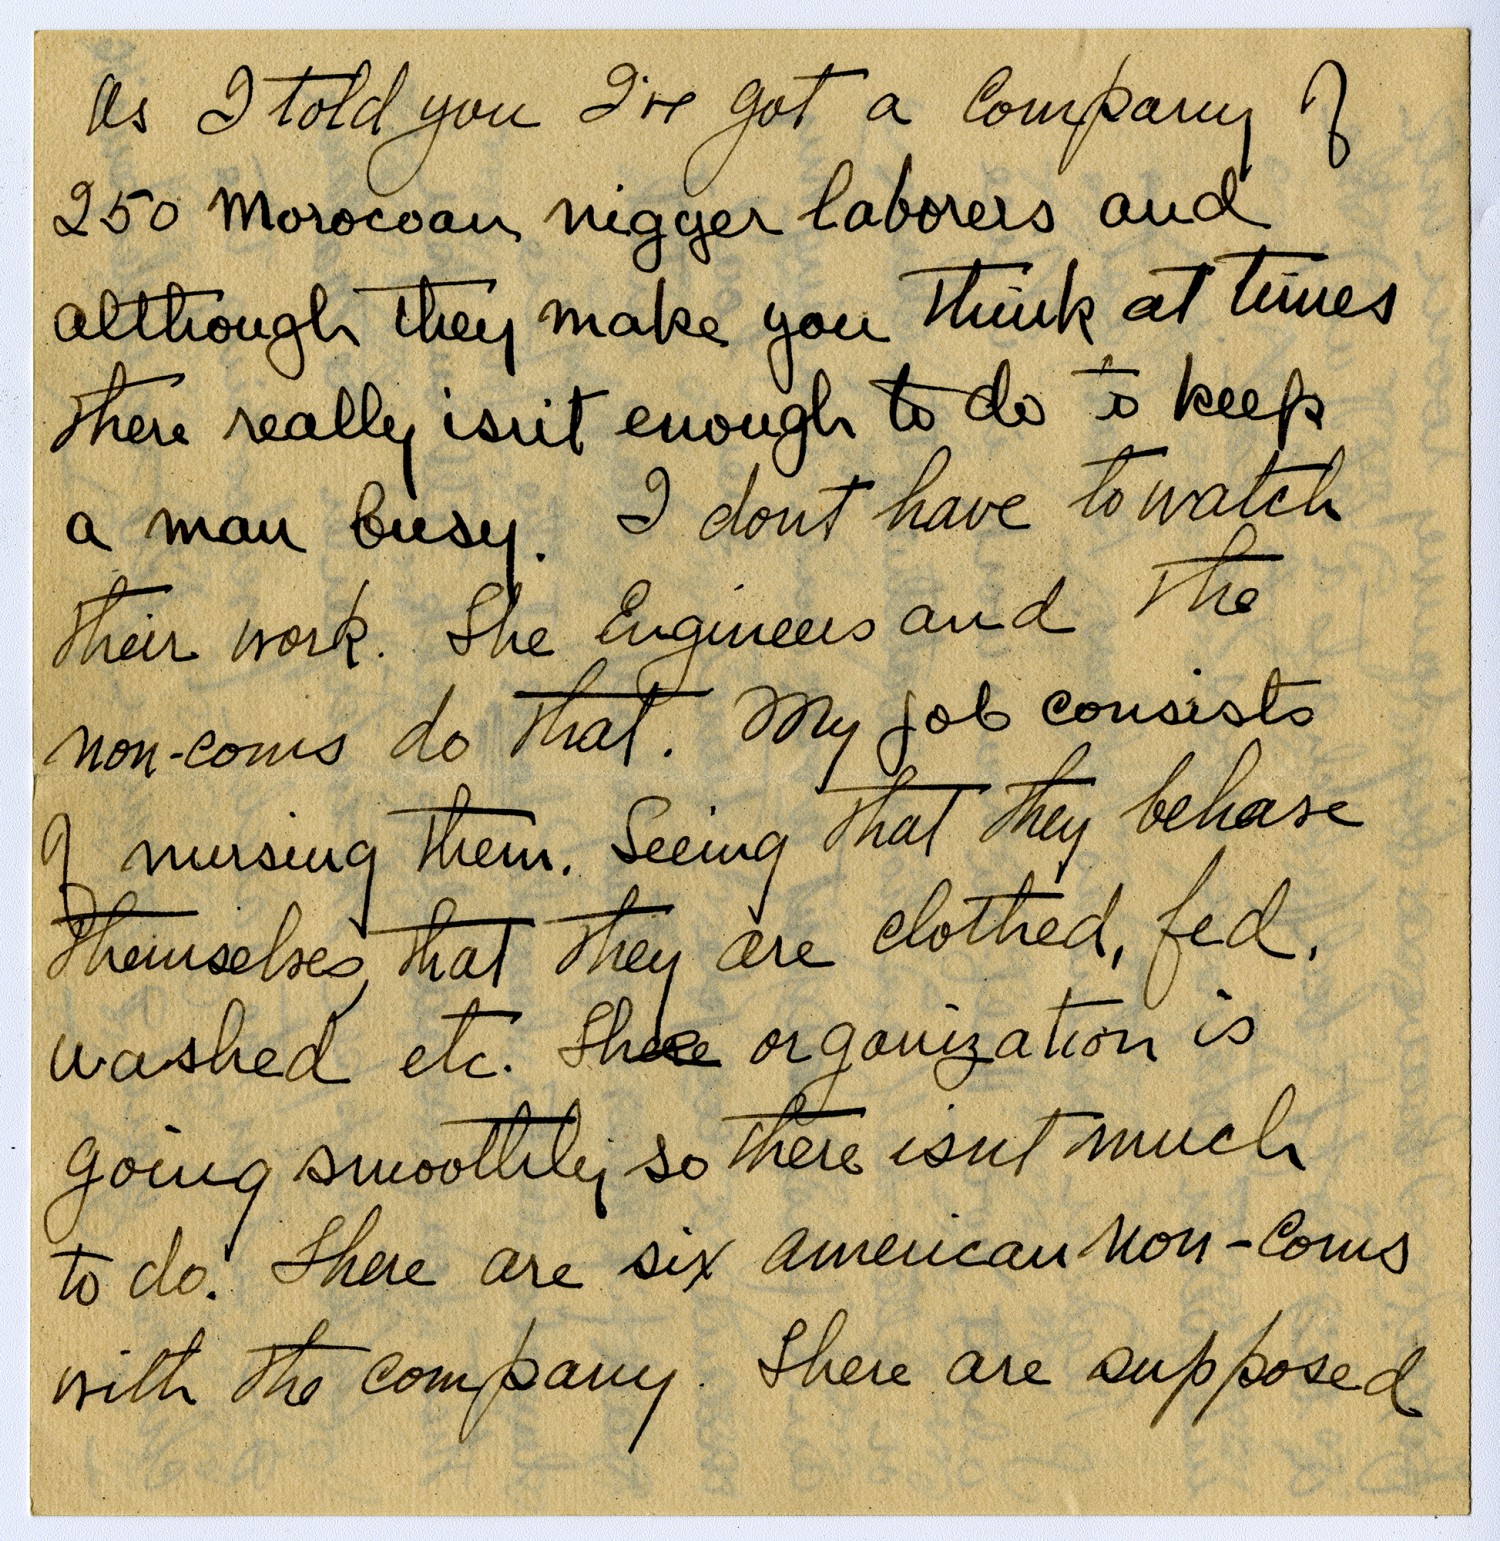 As I told you I've got a company of
250 Morocoan nigger laborers and
although they make you think at times
there really isn't enough to do to keep
a man busy. I dont have to watch
their work. The Engineers and the
non-coms do that. My job consists
of nursing them. Seeing that they behave
themselves, that they are clothed, fed,
washed etc. There organization is
going smoothly so there isnt much
to do. There are six american non-coms
with the company. There are supposed